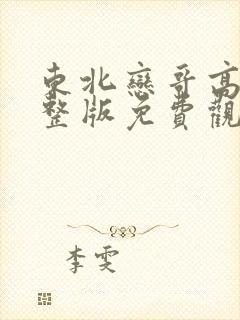 東北戀哥高
整版免費觀
李雯